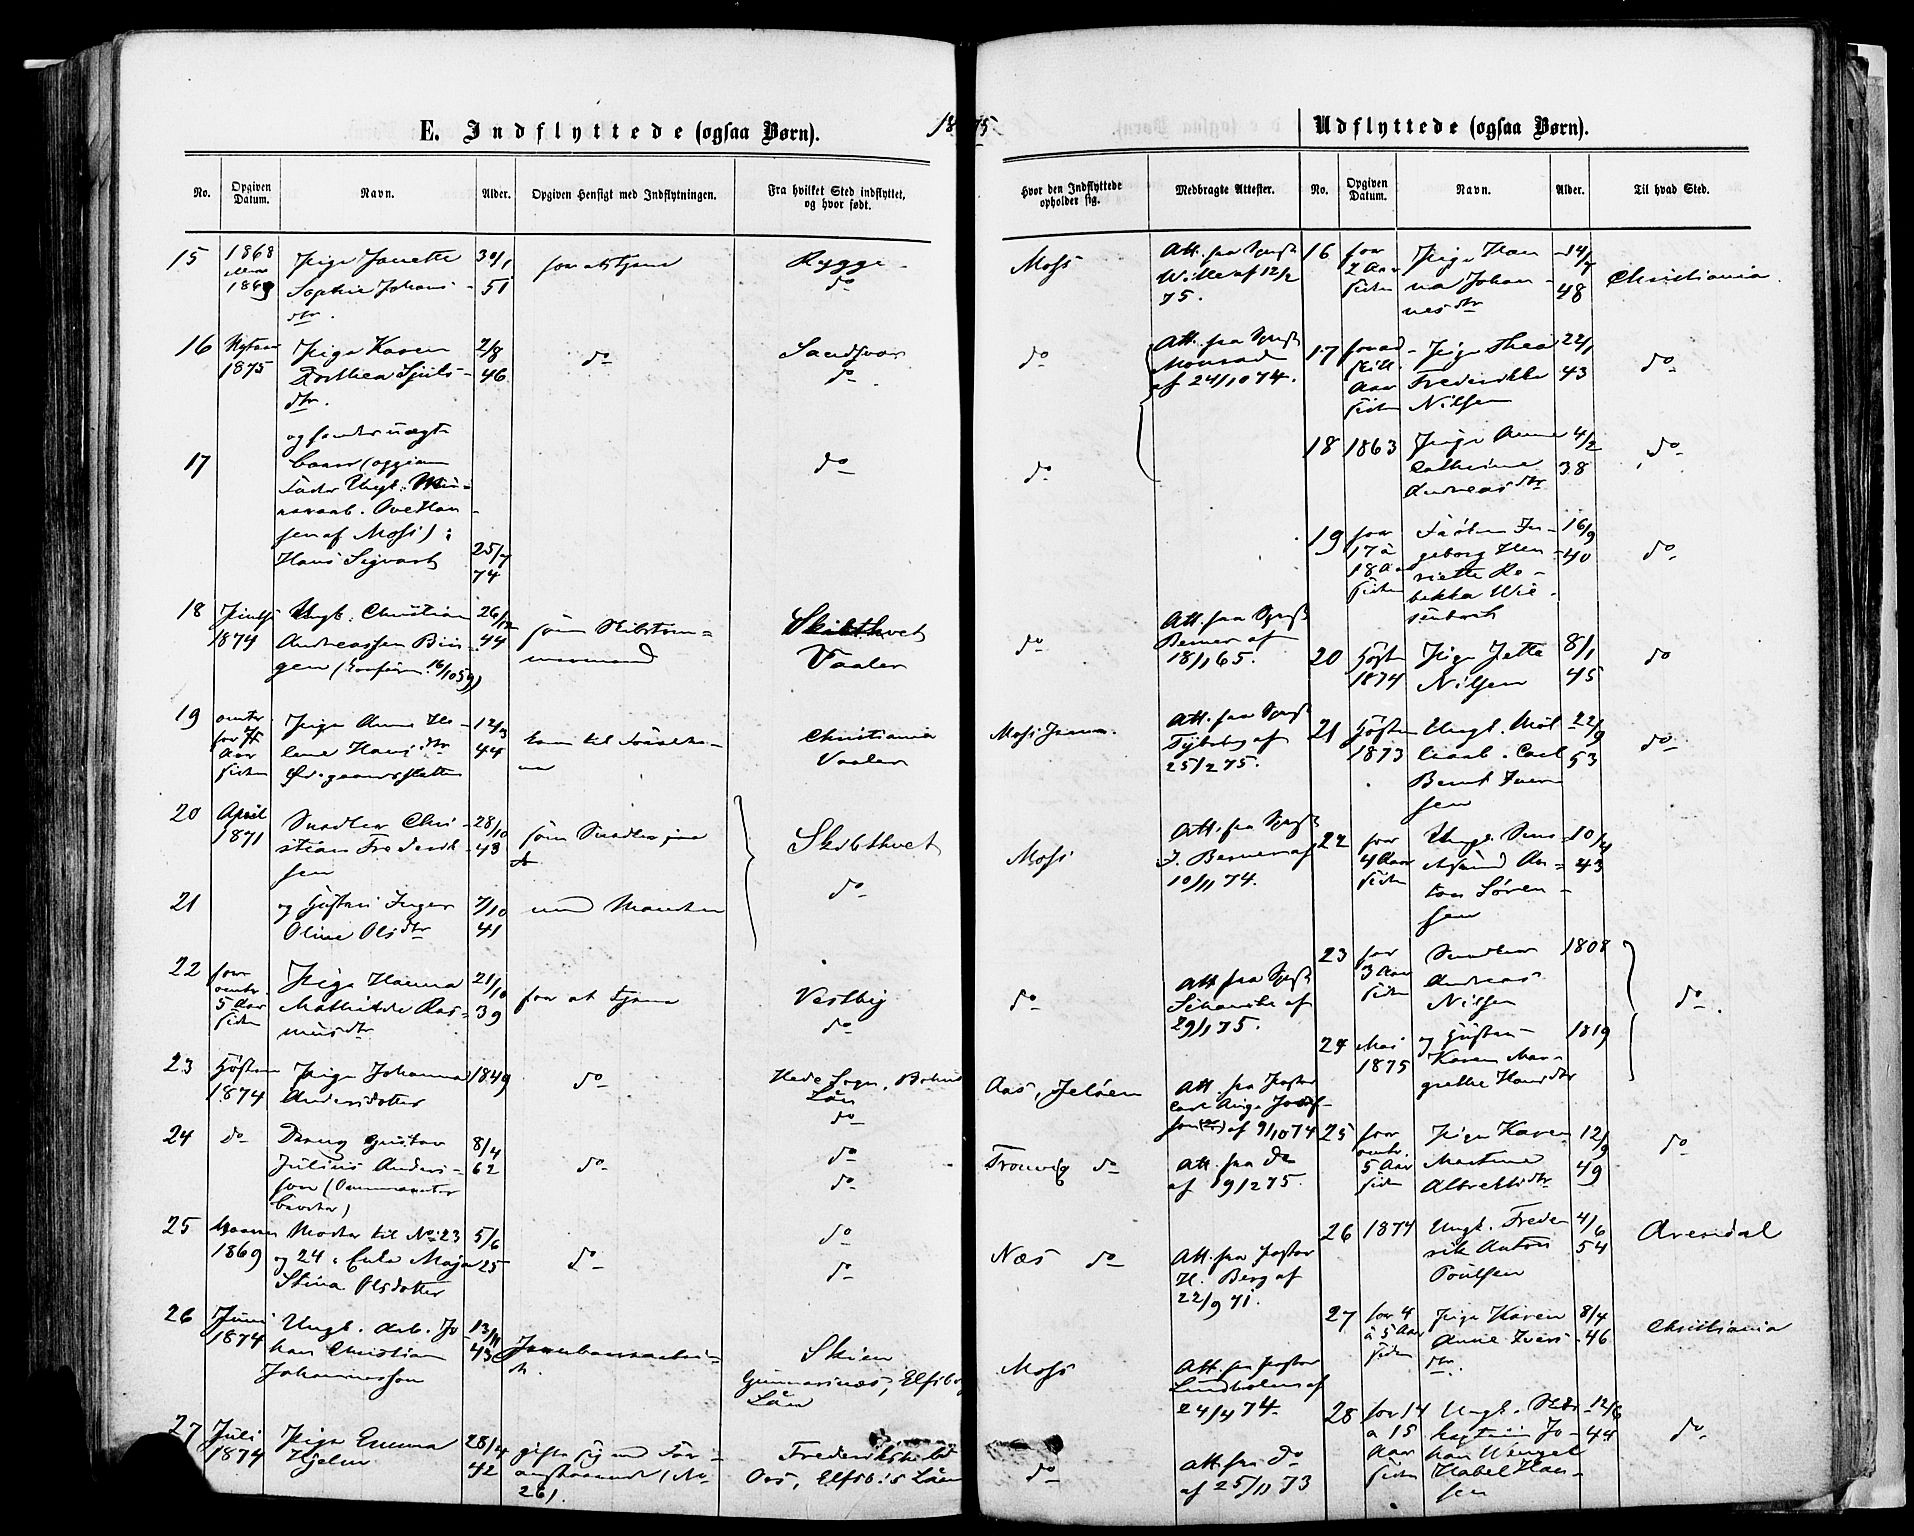 E. Indflyttede (ogsaa Børn).
1875
Udflyttede (ogsaa Børn).
No.
Opgiven Datum.
Navn.
Alder.
Opgiven Hensigt med Indflytningen.
Fra hvilket Sted indflyttet, og hvor født.
Hvor den Indflyttede opholder sig.
Medbragte Attester.
No.
Opgiven Datum.
Navn.
Alder.
Til hvad Sted.
15 1868 Pige Janette 30/1 for at tjene Rygge
1869 Sophie Johans- 51 do
dtr.
Moss Att. fra Spr
Wille af 12/2
75.
16 Nytaar Pige Karen 2/8 do Sandsvær
1875 Dorthea Sjuls- 46 do
dtr.
do Att. fra Spr
af 24/10 74.
17 og hendes uægte
Barn (opgiven
Fader Ungk.
Ove Han-
sen af Moss):
Hans Sigvart 25/7
74
do
do
18 Ungk. Christian 26/12 som Skibstøm- Skibthvet
1874 Andreassen Bin- 44 mermand Vaaler
gen (Confirm. 16/10 59)
do Att. fra Spr
Berner af
18/1 65.
19 omtr. Pige Anne He- 12/3 Christiania
for Aar lene Hansdtr 44 Vaaler
siden
Att. fra Spr
af
25/2 75.
20 April Snedker Chri- 28/10 som Snedker Skibthvet
1871 stian Frederik- 43 do
sen
Moss Att. fra Spr
J. Berner af
10/11 74.
21 og Hustru Inger 7/10 med Manden
Oline Olsdtr 41
22 for Pige Hanna 21/10 for at tjene Vestby
omtr. Mathilde Ras- 39 do
5 Aar musdtr
siden
do Att. fra Spr
Schanche af
29/1 75.
23 Høsten Pige Johanna 1849 do Hede Sogn, Bohus
1874 Andersdotter Län
do
Aas, Jeløen Att. fra Pastor
Carl Aug. Josef-
son af 9/10 74
24 do Dreng Gustav 8/4 do do
Julius Anders- 62 do
son
Tronvig do Att. fra do
af 19/2 75.
25 Vaaren Moder til No. 23 5/6 do do
1869 og 24: Eula Maja 25 do
Stina Olsdotter
Næs do Att. fra Pastor
H. Berg af
22/9 71.
26 Juni Ungk. Arb. Jo- 13/11 Jernbanearbei- Skien
1874 han Christian 43 d. Gunnarsnæs, Elfsborg
Johannesson Län
Moss Att. fra Pastor
Lindholm af
24/4 74.
27 Juli Pige Emma 28/4 gifte sig med For- Frederikshald
1874 Hjelm 42 anstaaende (No Ors, Elfsb:s Län
26).
do Att. fra do
af 25/11 73
16 for Pige Han- 14/7 Christiania
2 Aar na Johan- 48
siden nesdtr
17 Pige Thea 22/1 do
Aar Frederikke 43
siden Nilsen
18 1863 Pige Anne 4/2 do
Cathrine 38
Andreasdtr
19 for Frøken In- 16/9 do
17 à geborg Hen- 40
18 Aar riette Re-
siden bekka
20 Høsten Pige Jette 8/1 do
1874 Nilsen 45
21 Høsten Ungk. Møl- 22/9 do
1873 Carl 53
Bernt Iver-
sen
22 for Ungk. 10/4
4 Aar An- 43
siden ton Søren-
sen
23 for Snedker 1808 do
3 Aar Andreas
siden Nilsen
24 Mai og Hustru 1819
1875 Karen Mar-
grethe Hansdtr
25 for Pige Karen 12/9 do
omtr. Martine 49
5 Aar Albretsdtr
siden
26 1874 Ungk. Frede- 4/6 Arendal
rik Anton 54
Poulsen
27 for 4 Pige Karen 8/4 Christiania
à 5 Aar Anne Ivers- 46
siden dtr.
28 for 14 Ungk. 12/6 do
à 15 Jo- 44
Aar han Wenzel
siden Habel Han-
sen